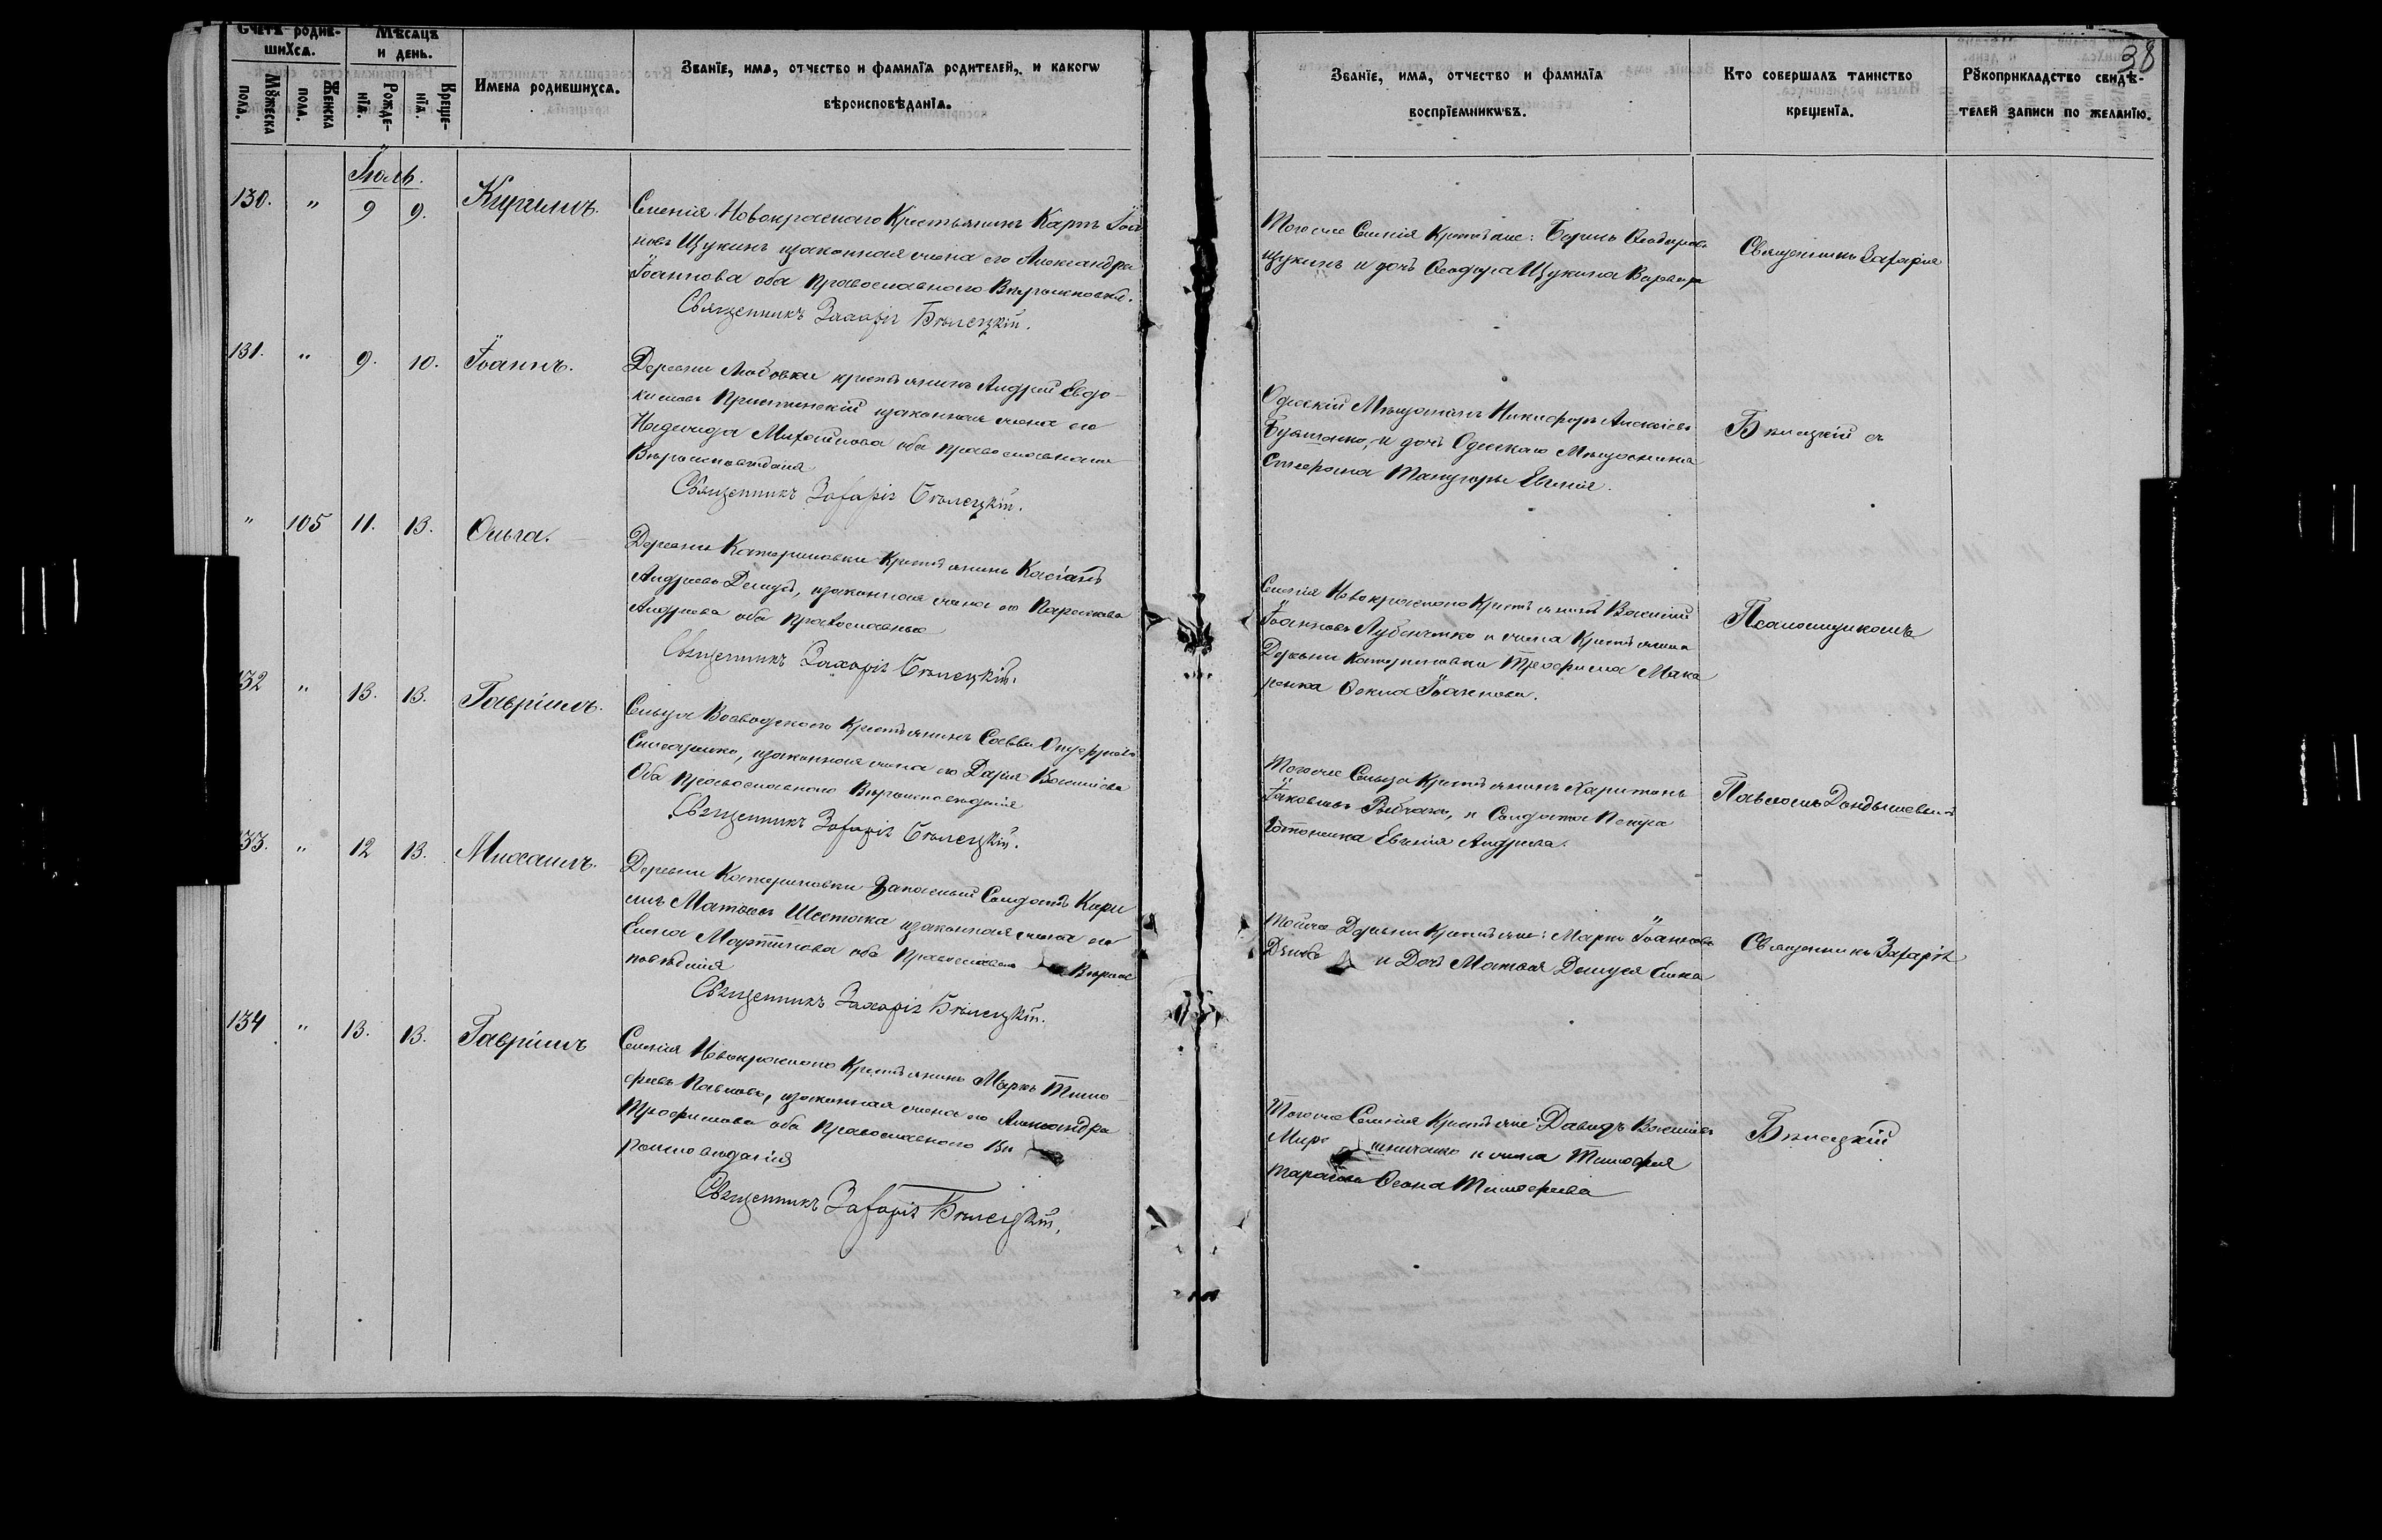 38
Счетъ родив-
шихсѧ.
Мѣсѧцъ
и день.
Имена родившихсѧ.
Званїе, имѧ, отчество и фамилїѧ родителей, и какогѡ
вѣроисповѣданїѧ.
Званїе, имѧ, отчество и фамилїѧ
воспрїемникѡвъ.
Кто совершалъ таинство
крещенїѧ.
Рꙋкоприкладство свидѣ-
телей записи по желанїю.
Мꙋжеска
пола.
Женска
пола.
Рожде-
нїѧ.
Креще-
нїѧ.
Іюль.
130. " 9 9. Кириллъ.
Селенія Новокраснаго Крестьянинъ Карпъ Іоа
новъ Щукинъ изаконная жена его Александра
Іоаннова оба Православнаго
Священникъ Захарія Бѣлецкій.
Тогоже Селенія Крестьяне:
Щукинъ и дочь Ѳеодора Щукина Варвара
Священникъ Захарія
131. " 9. 10. Іоаннъ.
Деревни крестьянинъ Андрей Евдо-
кимовъ изаконная жена его
Надежда Михайлова оба православнаго
Вѣроисповѣданія
Священникъ Захарія Бѣлецкій.
Одескій Мѣщанинъ Никифоръ Алексіевъ
и дочь Одескаго Мѣщанина
Стефана Евгенія.
Бѣлецкій съ
" 105 11. 13. Ольга.
Деревни Катериновки Крестьянинъ Касіанъ
Андреевъ Демидъ, изаконная жена его Параскева
Андреева оба Православные
Священникъ Захарія Бѣлецкій.
Селенія Новокраснаго Крестьянинъ Василій
Іоанновъ и жена Крестьянина
Деревни Катериновки Трофима Мака
ренка Іоаннова.
Псаломщикомъ
132 " 13. 13. Гавріилъ.
Сельца Воеводскаго Крестьянинъ Савва
изаконная жена его Дарія Васильева
Оба Православнаго Вѣроисповѣданія
Священникъ Захарія Бѣлецкій.
Тогоже Сельца Крестьянинъ Харитонъ
Іаковлевъ и Солдата Петра
Евгенія Андреева.
Павломъ
133. " 12 13. Михаилъ.
Деревни Катериновки Запасный Солдатъ Кири
лъ Матвеевъ Шестака изаконная жена его
Елена Мартинова оба Православнаго Вѣроис
повѣданія
Священникъ Захарія Бѣлецкій.
Тойже Деревни Крестьяне: Марко Іоанновъ
и Дочь Матвея Демидя Елена
Священникъ Захарія
134 " 13. 13. Гавріилъ
Селенія Новокраснаго Крестьянинъ Маркъ Тимо
феевъ Павловъ, изаконная жена его Александра
Трофимова оба Православнаго Вѣ
роисповѣданія
Священникъ Захарія Бѣлецкій.
Тогоже Селенія Крестьяне: Давидъ Васильевъ
и жена Тимофея
Тимофеева
Бѣлецкій